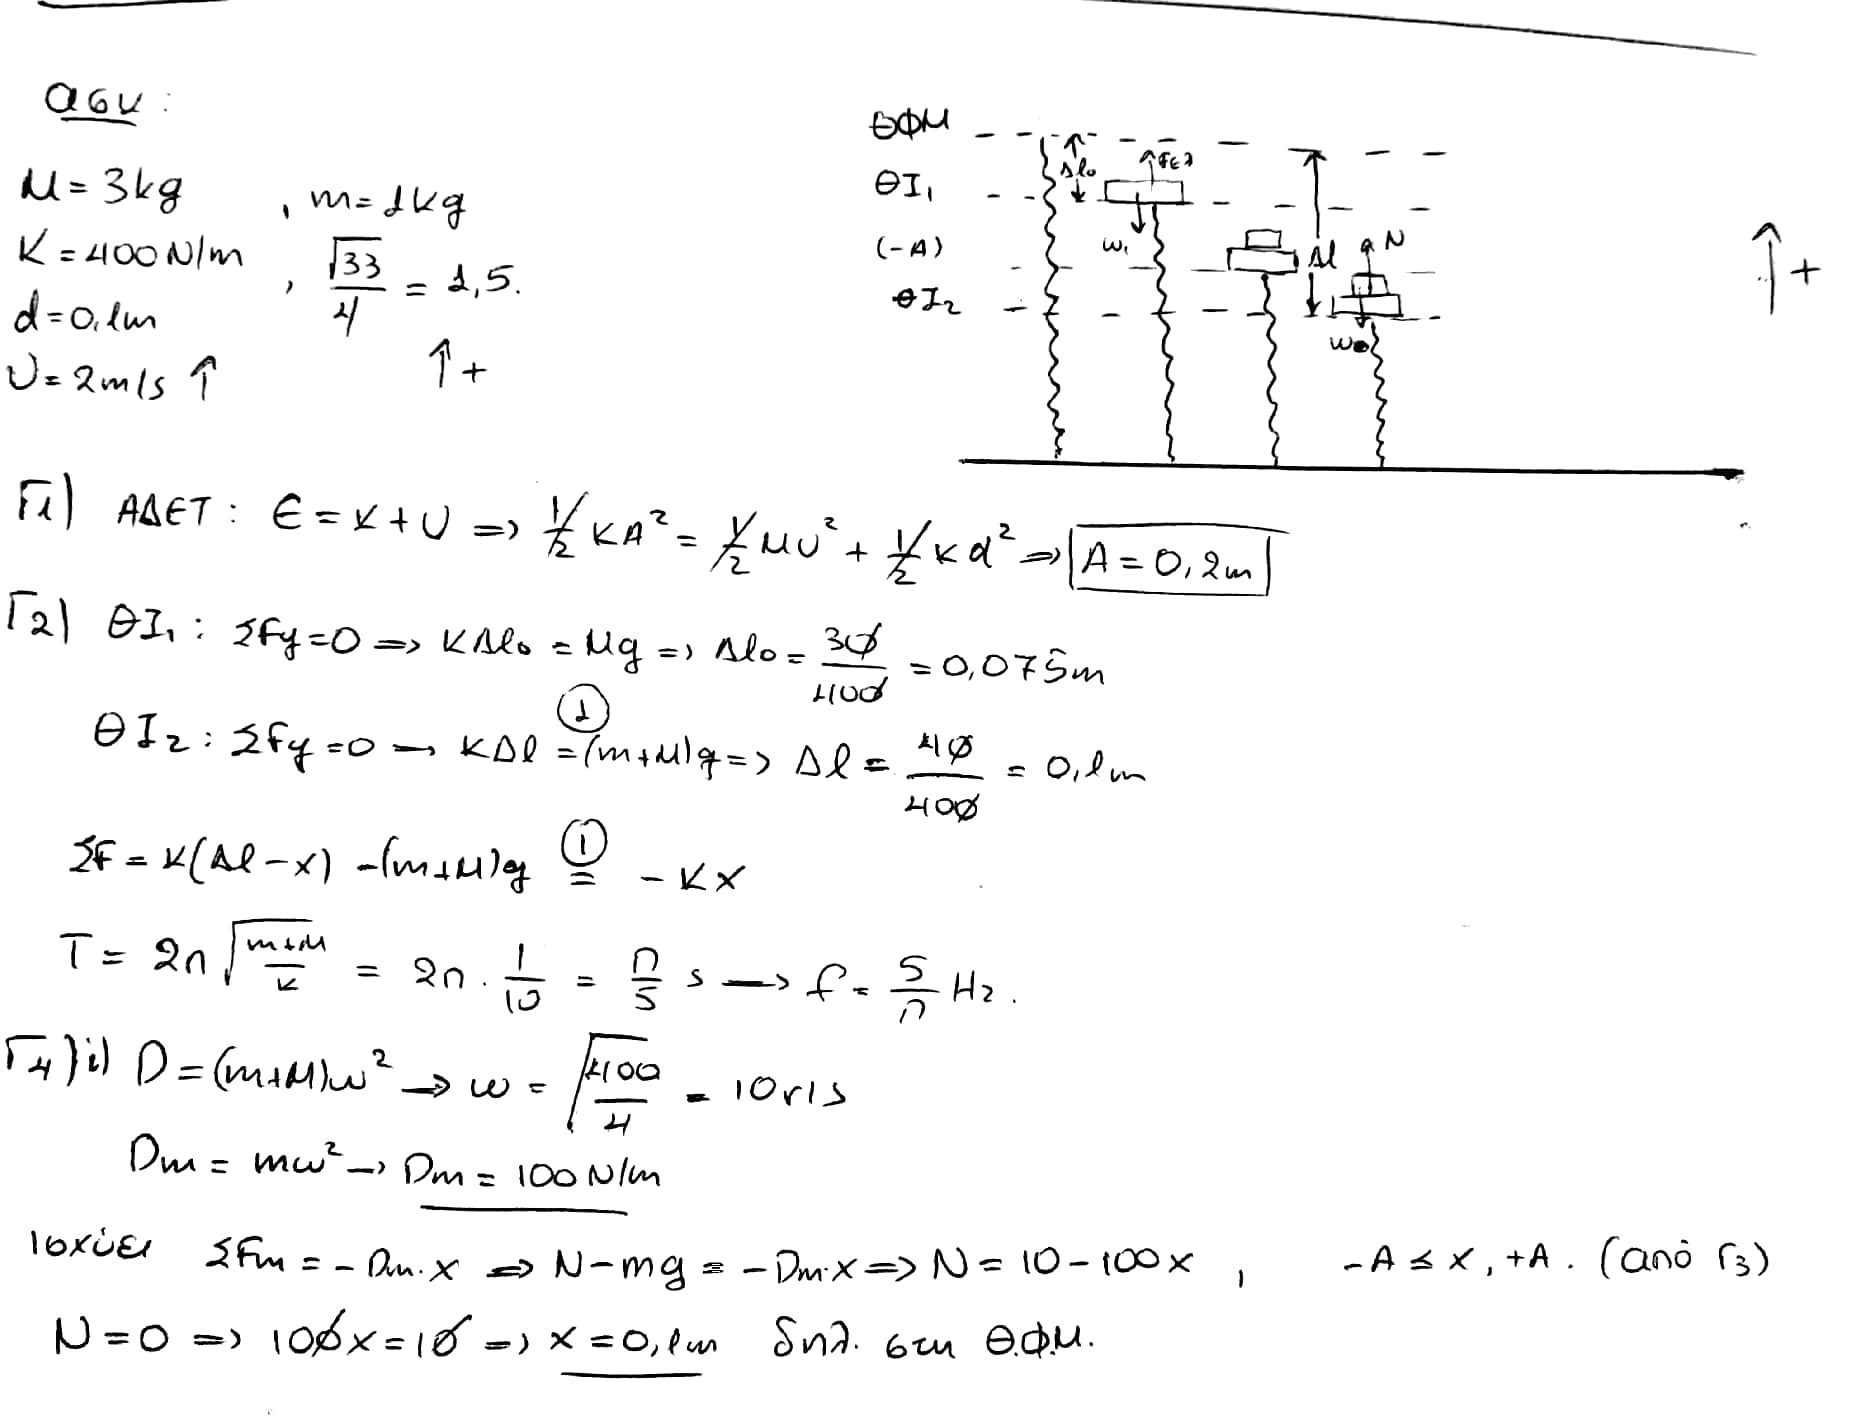 ασκ:
M = 3kg , m = 1kg
K = 400 N/m , √33/4 = 1,5.
d = 0,1m
υ = 2m/s ↑ ↑+
ΘΦΜ
ΘΙ₁
(-A)
ΘΙ₂
Δl₀
Fελ
w₁
Δl
N
↑+
Γ1) ΑΔΕΤ: E = K + U => 1/2 KA² = 1/2 Mυ² + 1/2 Kd² => A = 0,2m
Γ2) ΘΙ₁: ΣFy=0 => KΔl₀ = Mg => Δl₀ = 30/400 = 0,075m
ΘΙ₂: ΣFy=0 → KΔl = (m+M)g => Δl = 40/400 = 0,1m
①
ΣF = K(Δl-x) - (m+M)g =① -Kx
T = 2π √(m+M/K) = 2π · 1/10 = π/5 s → f = 5/π Hz.
Γ4) i) D = (m+M)ω² → ω = √(400/4) = 10 r/s
Dm = mω² → Dm = 100 N/m
ισχύει ΣFm = -Dm·x => N-mg = -Dm·x => N = 10-100x , -A ≤ x, +A. (από Γ3)
N=0 => 100x=10 => x=0,1m δηλ. στη Θ.Φ.Μ.